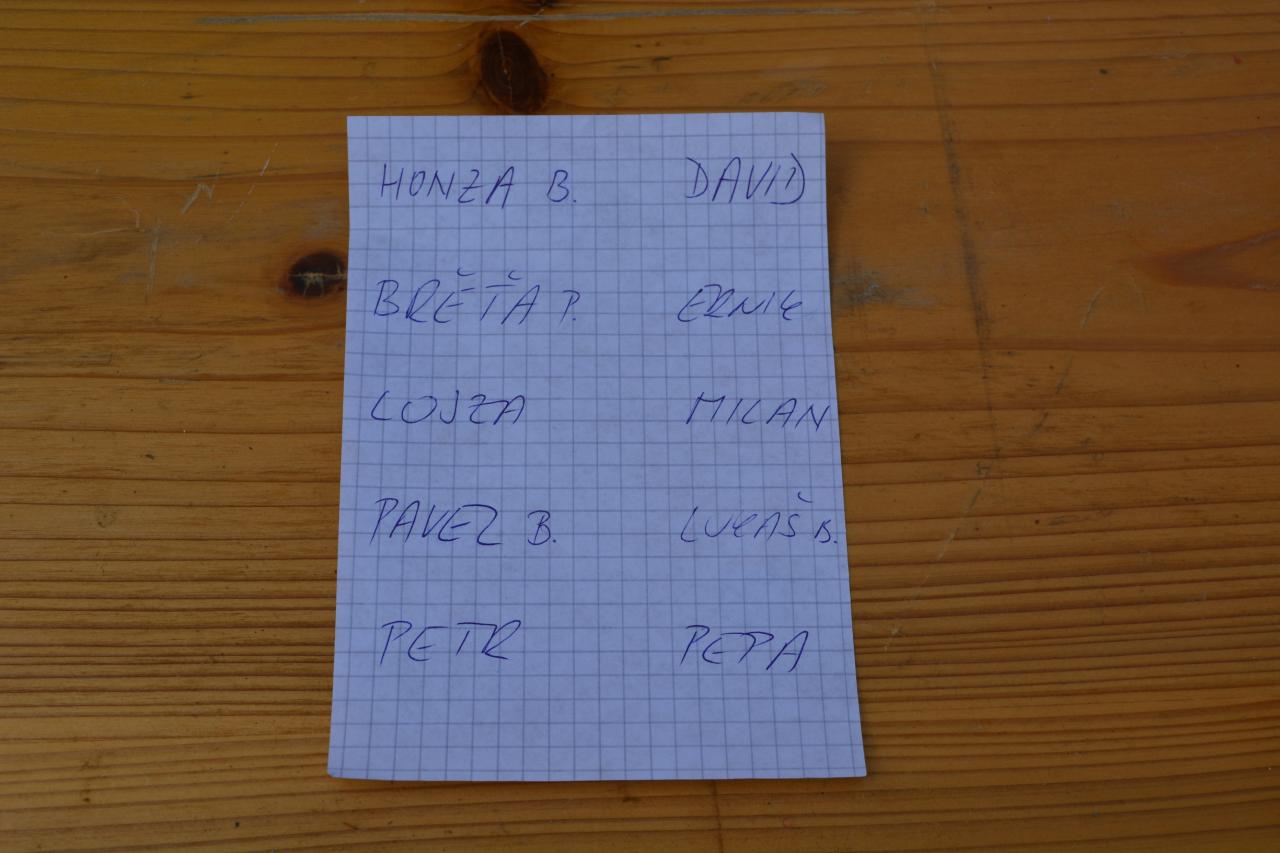 HONZA B. DAVID
BRĚŤA P. ERNIE
LOJZA MILAN
PAVEL B. LUKÁŠ B.
PETR PEPA